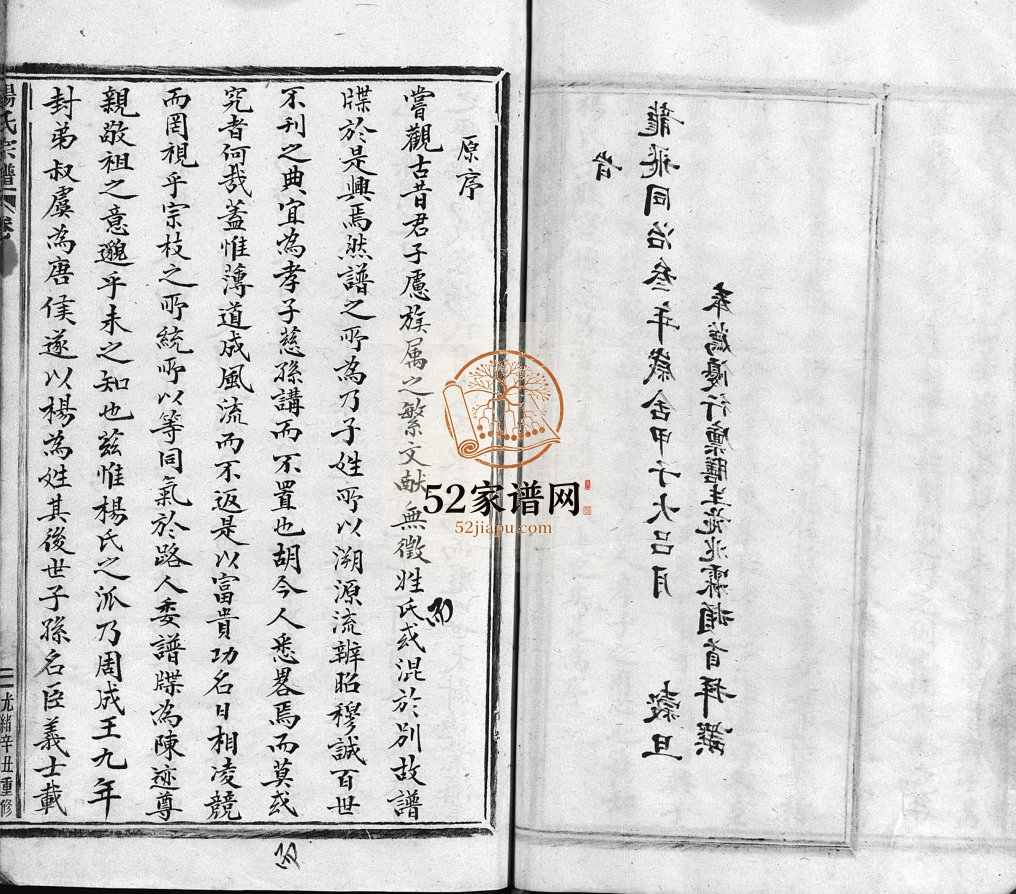 旹
龍飛同治叁年歲舍甲子大呂月 穀旦
優行廩膳生施兆霖頓首拜撰
原序
嘗觀古昔君子慮族属之繁文献無徵姓氏或混於別故譜
牒於是興焉然譜之所為乃子姓所以溯源流辨昭穆誠百世
不刊之典宜為孝子慈孫講而不置也胡今人悉畧焉而莫或
究者何哉蓋惟薄道成風流而不返是以富貴功名日相凌競
而罔視乎宗枝之所統所以等同氣於路人委譜牒為陳迹尊
親敬祖之意邈乎未之知也兹惟楊氏之派乃周成王九年
封弟叔虞為唐侯遂以楊為姓其後世子孫名臣義士載
楊氏宗譜 卷
二 光緒辛丑重修
52家谱网
52jiapu.com